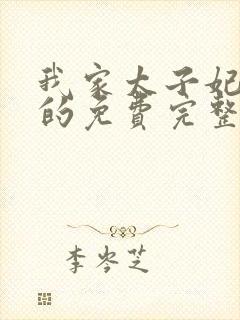 我家太子妃
的免費完整
李岑芝